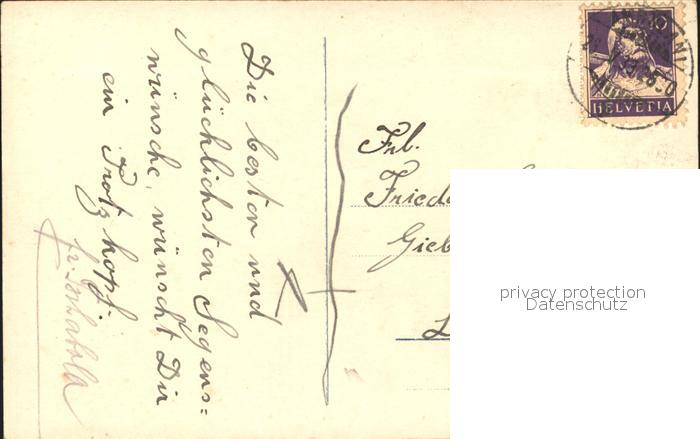 Die besten und
glücklichsten Segens=
wünsche, wünscht Dir
ein Trotzkopf.
Frl.
Frieda
Gieb
10
HELVETIA
privacy protection
Datenschutz